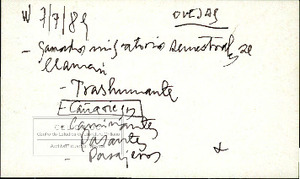 W 7/7/89 OVEJAS
- ganado migratorio semestral se
llaman
- Trashumante
- Cañariegos
- Caminantes
- Pasantes
- Pasajeros